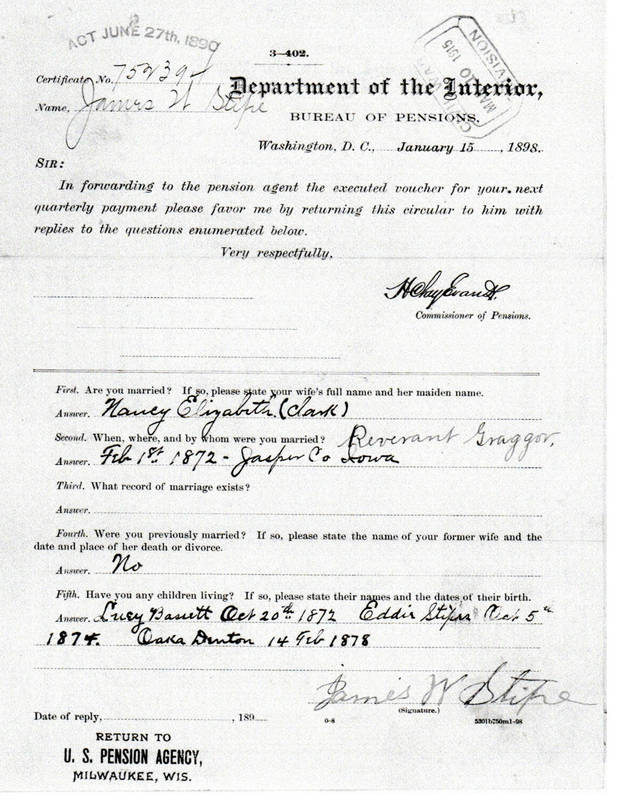 ACT JUNE 27th, 1890
3—402.
Certificate No.
Name, James W Stipe
Department of the Interior,
BUREAU OF PENSIONS.
Washington, D. C., January 15, 1898.
SIR:
In forwarding to the pension agent the executed voucher for your next
quarterly payment please favor me by returning this circular to him with
replies to the questions enumerated below.
Very respectfully,
H Clay Evans
Commissioner of Pensions.
First. Are you married? If so, please state your wife's full name and her maiden name.
Answer. Nancy Elizabeth (Clark)
Second. When, where, and by whom were you married? Reverant Graggor,
Answer. Feb 1st 1872 - Jasper Co Iowa
Third. What record of marriage exists?
Answer.
Fourth. Were you previously married? If so, please state the name of your former wife and the
date and place of her death or divorce.
Answer. No
Fifth. Have you any children living? If so, please state their names and the dates of their birth.
Answer. Lucy Bassett Oct 20th 1872 Eddie Oct 5th
1874. Denton 14 Feb 1878
James W Stipe
(Signature.)
Date of reply, , 189
o-8
5301b750m1-98
RETURN TO
U. S. PENSION AGENCY,
MILWAUKEE, WIS.